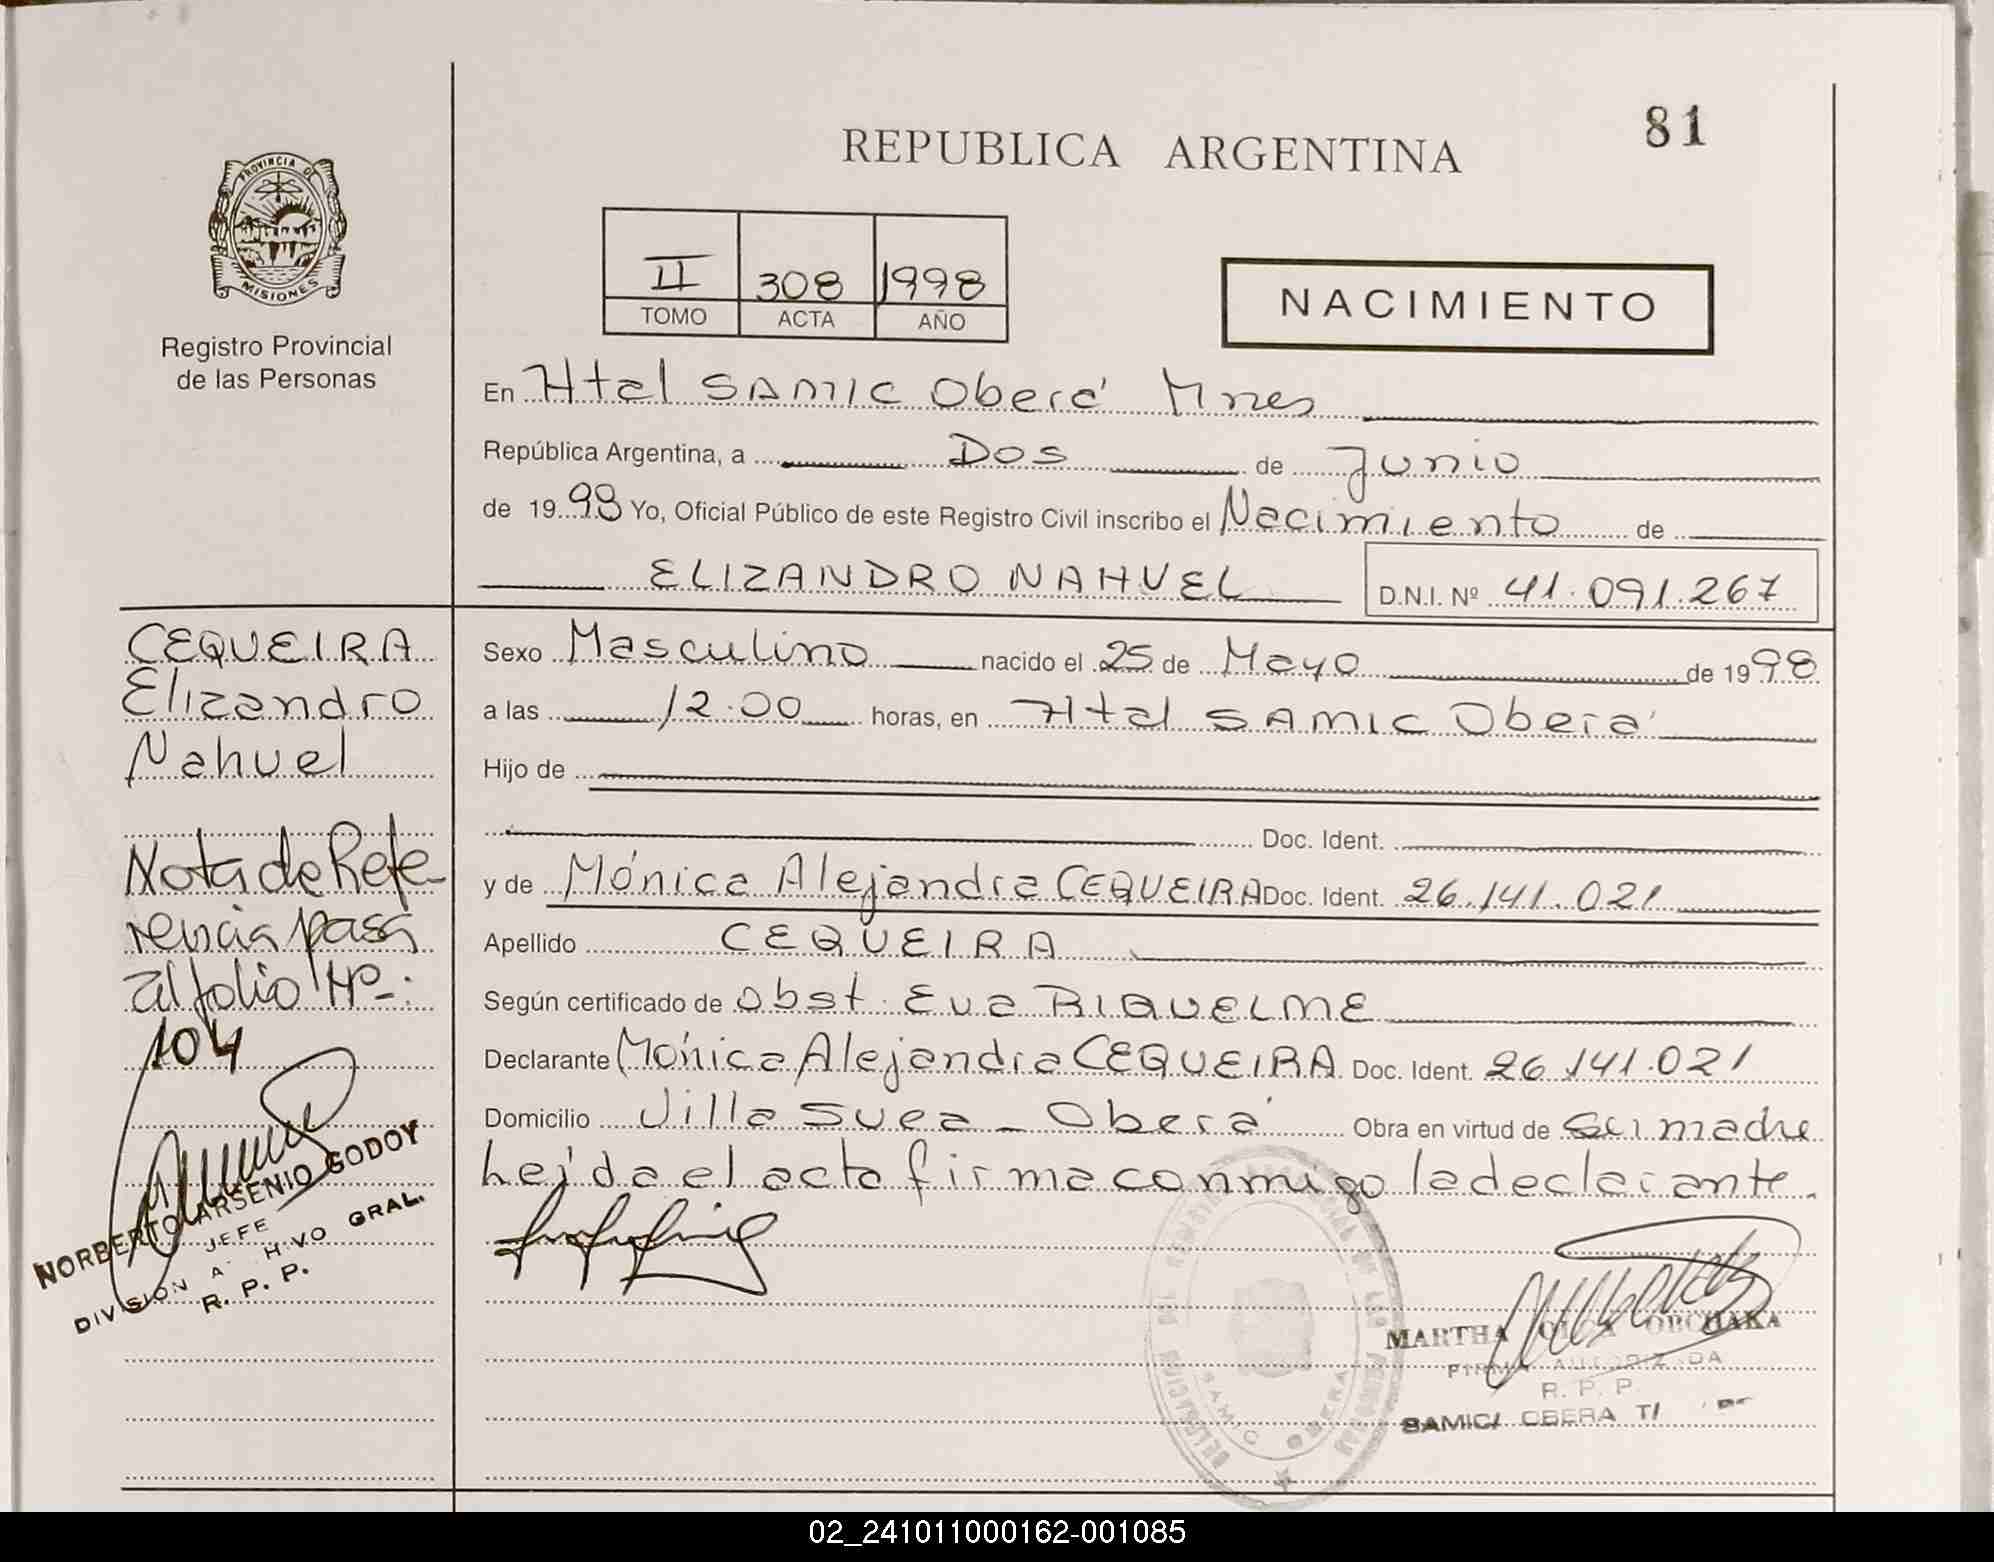 81
REPUBLICA ARGENTINA
PROVINCIA DE
MISIONES
Registro Provincial
de las Personas
II 308 1998
TOMO ACTA AÑO
NACIMIENTO
En Htal SAMIC Oberá Mnes
República Argentina, a Dos de Junio
de 1998 Yo, Oficial Público de este Registro Civil inscribo el Nacimiento de
ELIZANDRO NAHUEL D.N.I. Nº 41.091.267
CEQUEIRA
Elizandro
Nahuel
Nota de Refe-
rencia pasa
al folio Nº-:
104
NORBERTO ARSENIO GODOY
JEFE
DIVISION A HIVO GRAL.
R. P. P.
Sexo Masculino nacido el 25 de Mayo de 1998
a las 12.00 horas, en Htal SAMIC Oberá
Hijo de
Doc. Ident.
y de Mónica Alejandra CEQUEIRA Doc. Ident. 26.141.021
Apellido CEQUEIRA
Según certificado de Obst. Eva RIQUELME
Declarante Mónica Alejandra CEQUEIRA Doc. Ident. 26.141.021
Domicilio Villa Suea - Oberá Obra en virtud de ser madre
Leída el acta firma conmigo la declarante.
SAMIC OBERA
MARTHA OLGA OBCHAKA
FIRMA AUTORIZADA
R. P. P.
SAMIC/ OBERA
02_241011000162-001085